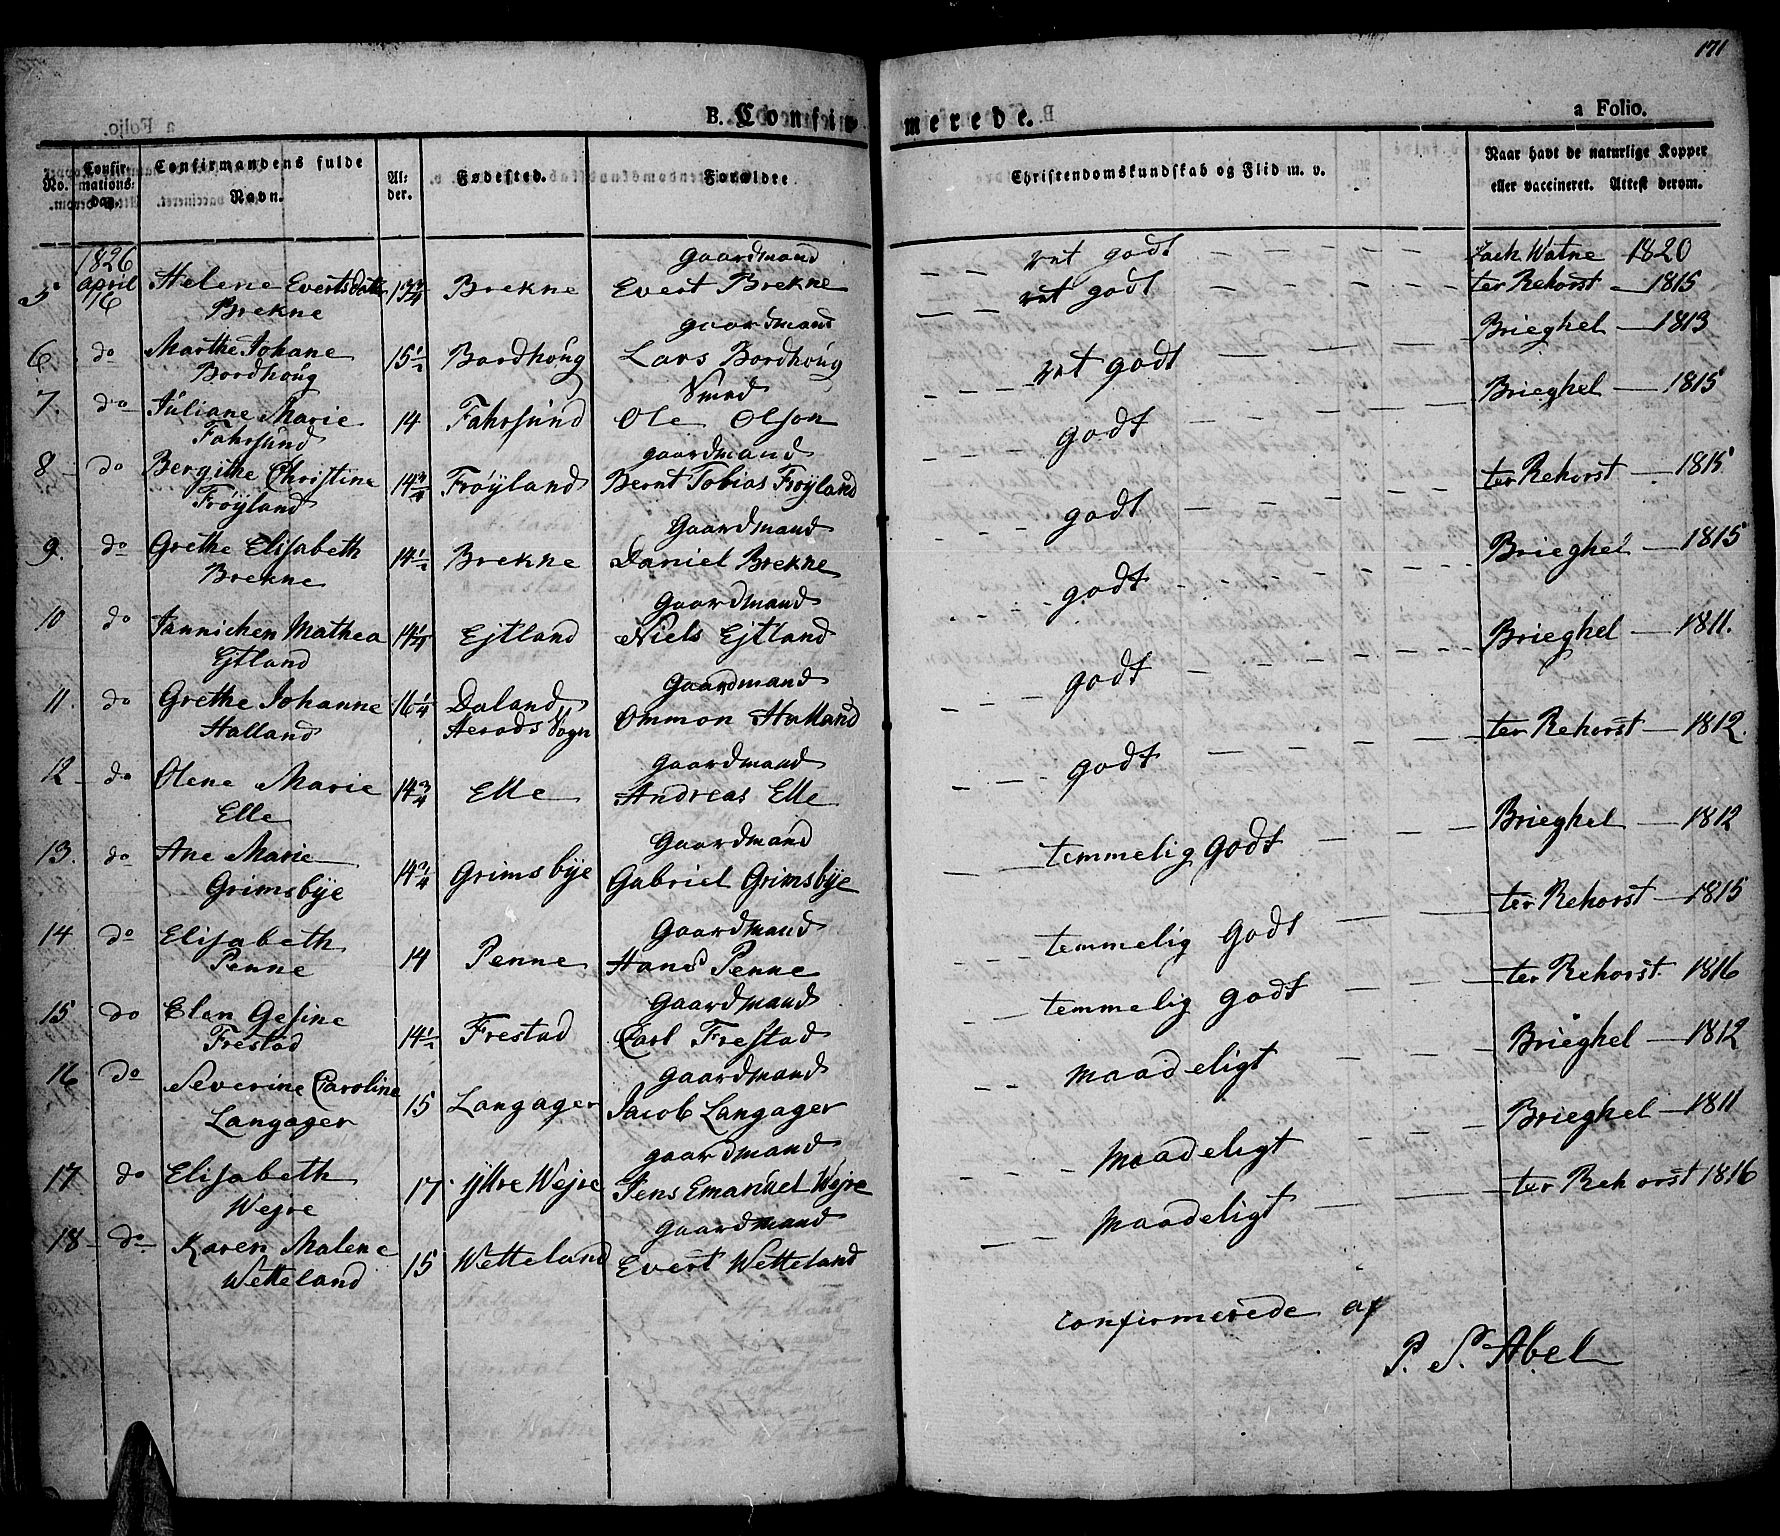 171
B. Confirmerede. a Folio.
No. Confirmationsdag. Confirmandens fulde Navn. Alder. Fødested. Forældre Christendomskundskab og Flid m. v. Naar havt de naturlige Kopper eller vaccineret. Attest derom.
1826 Gaardmand godt Zach Watne 1820
5 April 16 Helene Evertsdatter 13 3/4 Brekne Evert Brekne godt ter Rehorst 1815
Brekne
Gaardmand Brieghel 1813
6 do Marthe Johane 15 1/2 Bordhoug Lars Bordhoug godt
Bordhoug
Smed Brieghel 1815
7. do Juliane Marie 14 Fahrsund Ole Olson godt
Fahrsund
gaardmand
8 do Bergithe Christine 14 3/4 Frøyland Bernt Tobias Frøyland godt ter Rehorst 1815
Frøyland
Gaardmand
9. do Grethe Elisabeth 14 1/2 Brekne Daniel Brekne godt Brieghel 1815
Brekne
Gaardmand
10 do Jannichen Mathea 14 1/4 Ejtland Niels Ejtland godt Brieghel 1811.
Ejtland
Gaardmand
11. do Grethe Johanne 16 1/4 Daland Ommon Halland godt ter Rehorst 1812.
Halland Herads Sogn
gaardmand
12 do Olene Marie 14 3/4 Elle Andreas Elle temmelig godt Brieghel 1812
Elle
Gaardmand
13. do Ane Marie 14 3/4 Grimsbye Gabriel Grimsbye ter Rehorst 1815
Grimsbye
Gaardmand
14 do Elisabeth 14 Penne Hans Penne temmelig godt ter Rehorst 1816
Penne
Gaardmand
15 do Elen Gesine 14 1/2 Frestad Carl Frestad temmelig godt Brieghel 1812
Frestad
gaardmand
16 do Severine Caroline 15 Langager Jacob Langager maadeligt Brieghel 1811
Langager
gaardmand
17 do Elisabeth 17 Yttre Wejre Jens Emanuel Wejre maadeligt ter Rehorst 1816
Wejre
Gaardmand
18 do Karen Malene 15 Wetteland Evert Wetteland maadeligt
Wetteland
confirmerede af
P. S. Abel